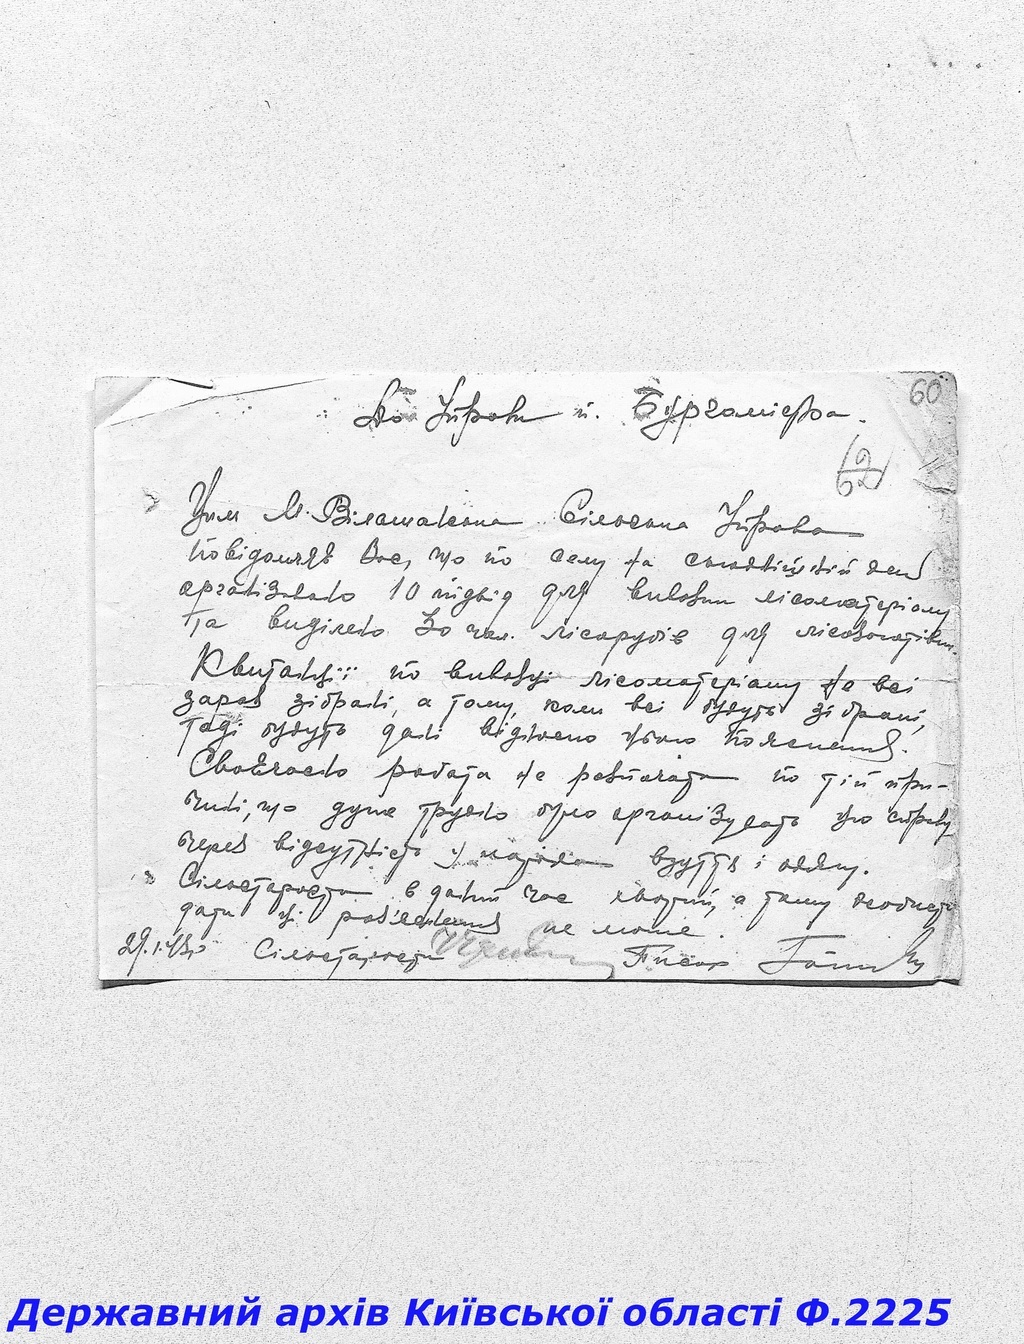 До Управи п. Бургомістра.
60
62
Цим М. Вільшанська Сільська Управа
повідомляє Вас, що по селу на сьогоднішній день
організовано 10 підвід для вивозки лісоматеріалу
та виділено 30 чол. лісорубів для лісозаготівлі.
Квитанції по вивозці лісоматеріалу не всі
зараз зібрані, а тому, коли всі будуть зібрані,
тоді будуть дані відносно цього пояснення.
Своєчасно робота не розпочата по тій при-
чині, що дуже трудно було організувати цю справу
через відсутність у народа взуття і одежі.
Сільстароста в даний час хворий, а тому особисто
дати ці роз'яснення не може.
29.I.43р Сільстароста Писар
Державний архів Київської області Ф.2225